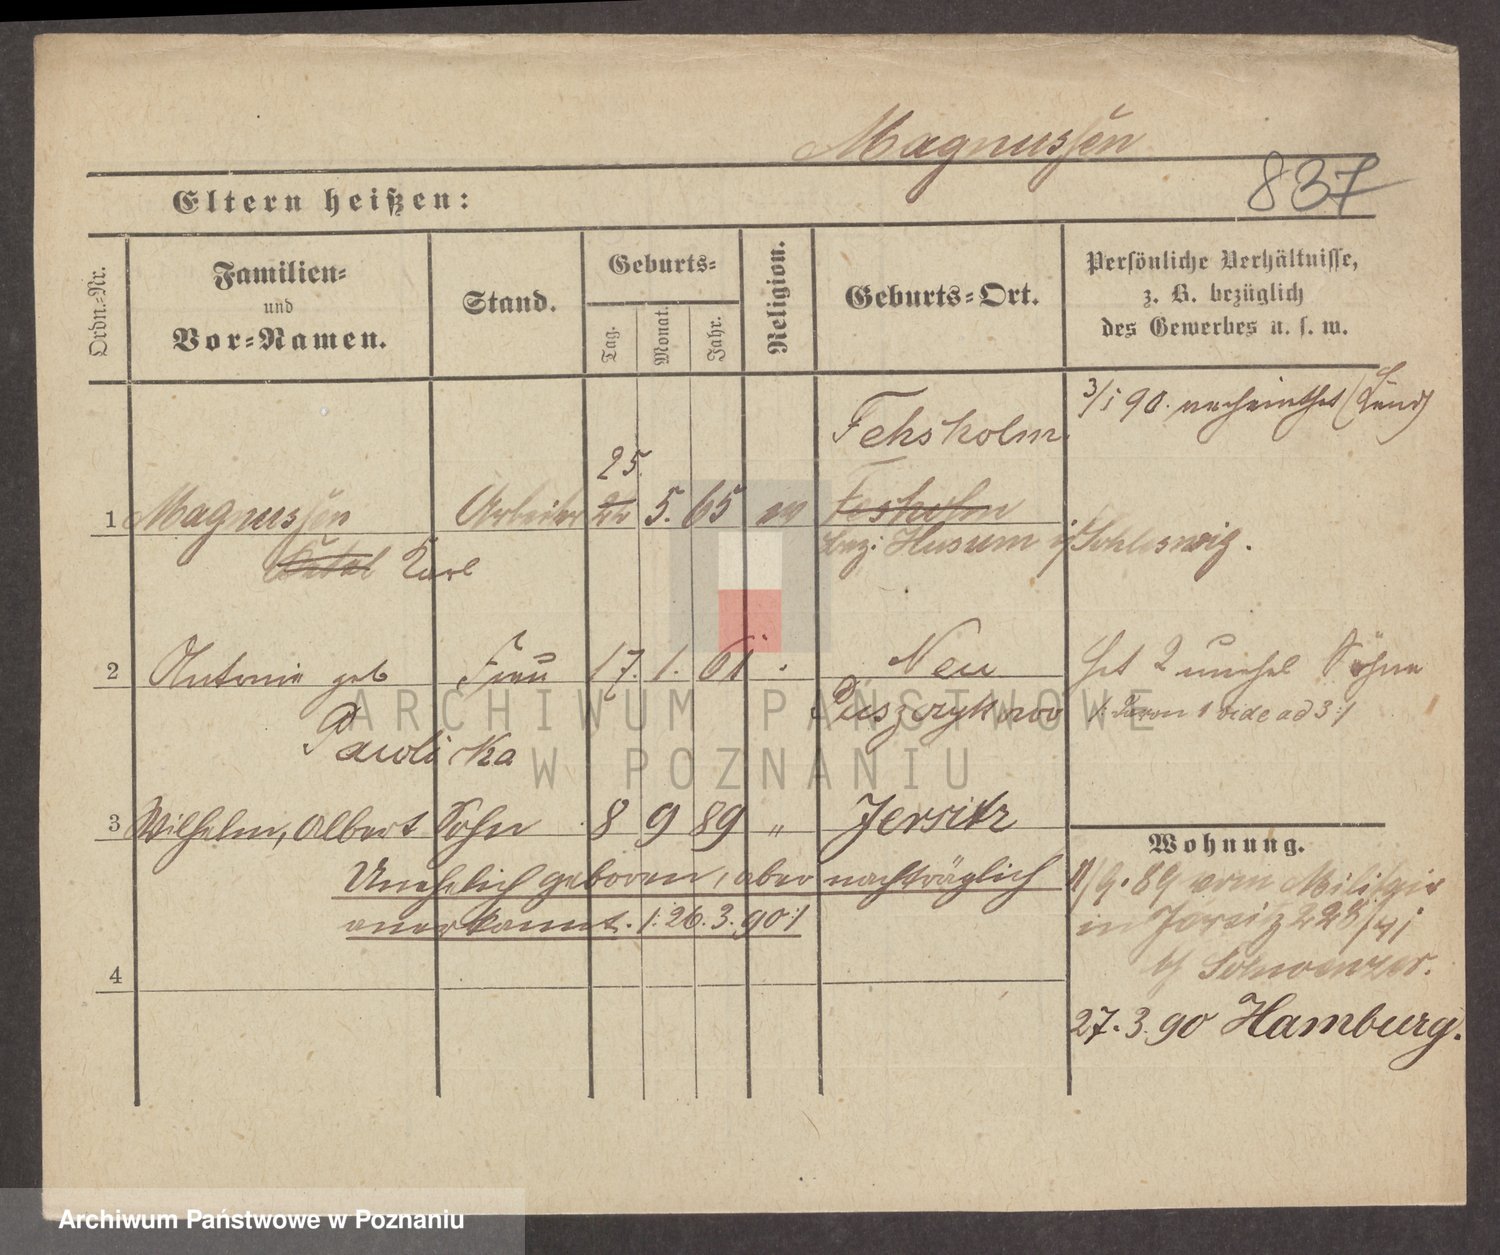 Magnussen
837
Eltern heißen:
Ordn.=Nr.
Familien=
und
Vor=Namen.
Stand.
Geburts=
Tag.
Monat.
Jahr.
Religion.
Geburts=Ort.
Persönliche Verhältnisse,
z. B. bezüglich
des Gewerbes u. s. w.
3/1 90.
Fehsholm.
25.
1 Magnussen Arbeiter 22 5. 65 ev Fesholm
Karl bez: Husum i/Schleswig.
2 Antonie geb Frau 17. 1. 61 Neu hat 2 unehel Söhne
Pawlicka Puszczykowo /: davon 1 vide ad 3 :/
3 Wilhelm, Albert Sohn 8 9 89 " Jersitz
Wohnung.
Unehelich geboren, aber nachträglich
anerkannt. /: 26.3.90 :/
11/9. 89 vom
in Jersitz
27.3.90 Hamburg.
4
ARCHIWUM PAŃSTWOWE
W POZNANIU
Archiwum Państwowe w Poznaniu